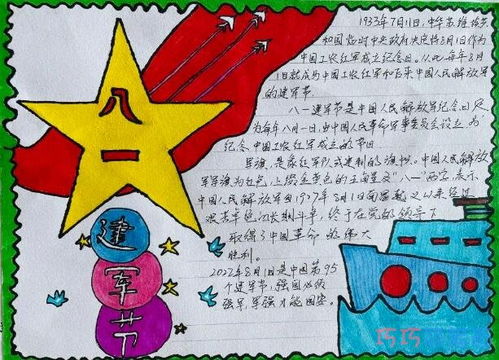 八
一
建
军
节
1933年7月11日,中华苏维埃
和国临时中央政府决定将8月1日作为
中国工农红军成立纪念日。从此每年8月
1日就成为中国工农红军和后来中国人民解放军
的建军节
八一建军节是中国人民解放军纪念日,定
为每年八月一日,由中国人民革命军事委员会设立,为
纪念中国工农红军成立的节日
军旗,是象征军队或建制的旗帜。中国人民解放
军军旗为红色,上缀金黄色的五角星及"八一"两字,表示
中国人民解放军自1927年8月1日南昌起义以来经过
长期斗争,终于在党的领导下
取得了中国革命的伟大
胜利。
2022年8月1日是中国第95
个建军节,强国必须
强军,军强才能国安。
巧巧